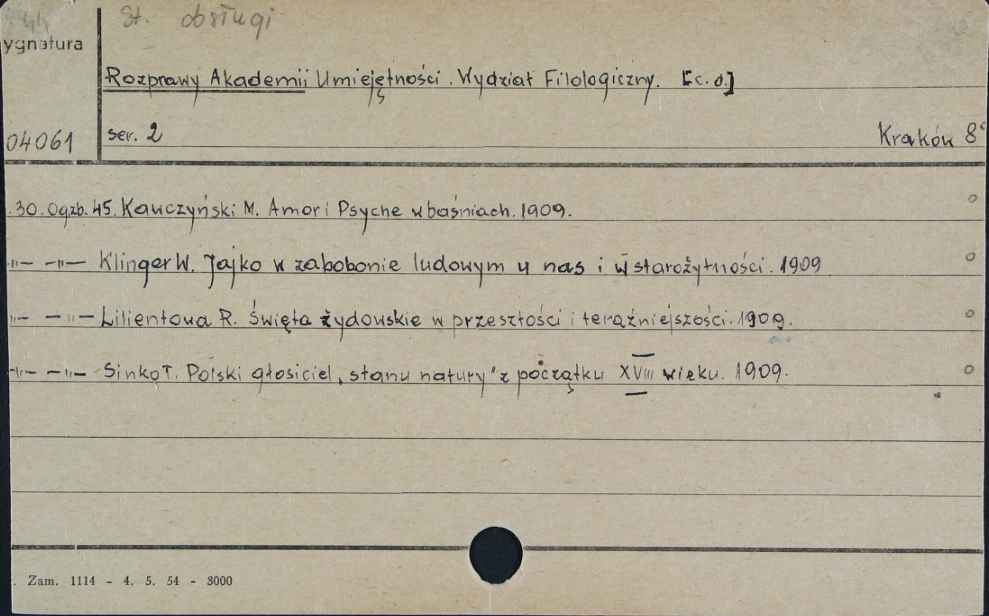 44 St. obsługi
ygnatura
Rozprawy Akademii Umiejętności. Wydział Filologiczny. [c.d.]
04061 ser. 2 Kraków 8°
.30. Ogzb. 45. Kawczyński M. Amor i Psyche w baśniach. 1909. o
-"- -"- Klinger W. Jajko w zabobonie ludowym u nas i w starożytności. 1909 o
-"- -"- Lilientowa R. Święta żydowskie w przeszłości i teraźniejszości. 1909. o
-"- -"- Sinko T. Polski głosiciel „stanu natury" z początku XVIII wieku. 1909. o
. Zam. 1114 - 4. 5. 54 - 8000